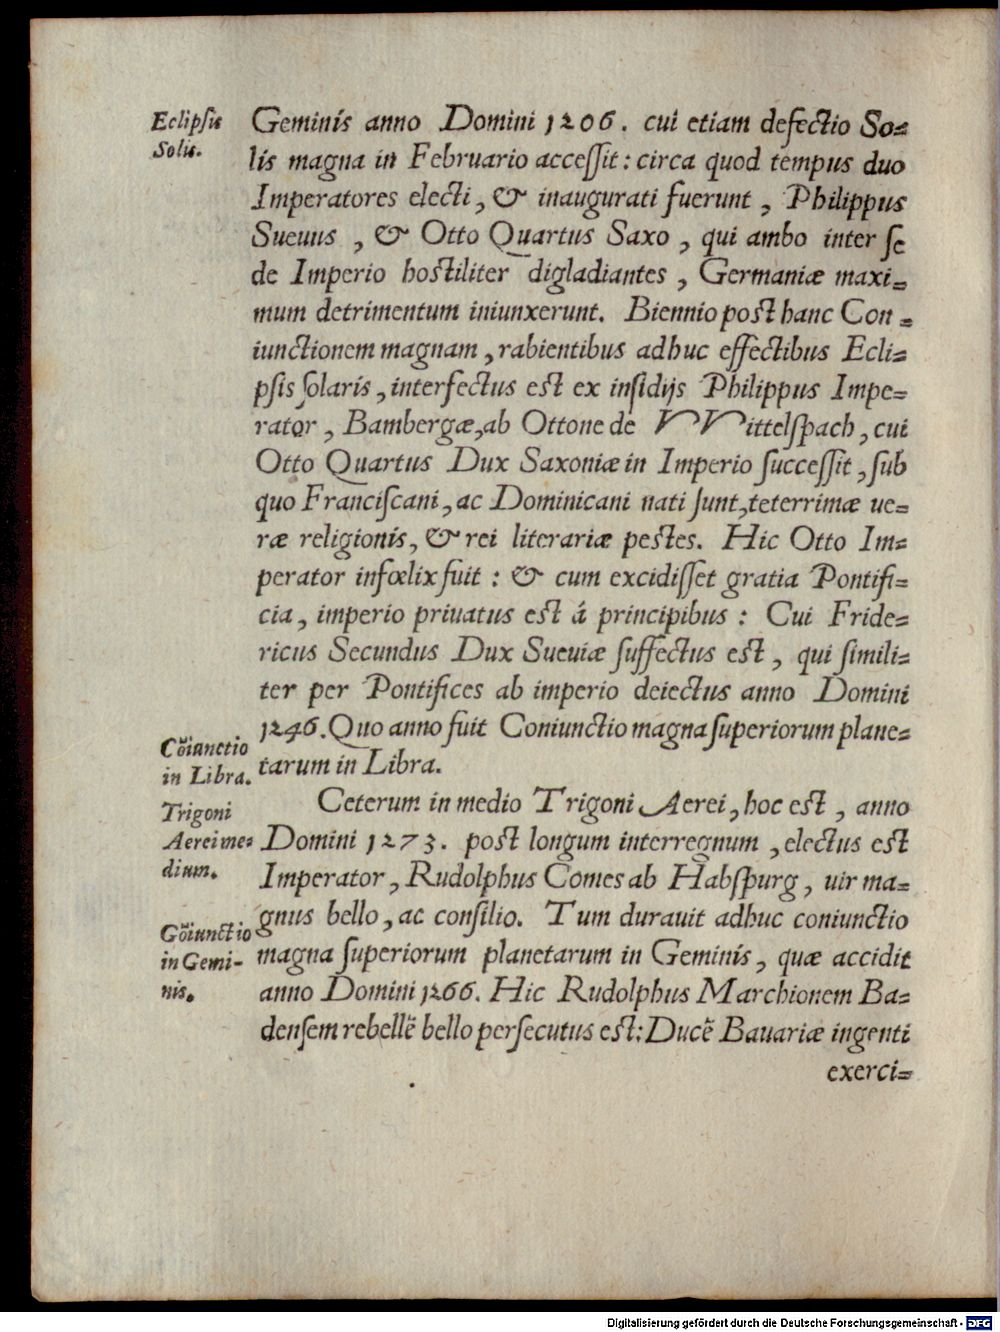 Eclipsis
Solis.
Geminis anno Domini 1206. cui etiam defectio So=
lis magna in Februario accessit: circa quod tempus duo
Imperatores electi, & inaugurati fuerunt, Philippus
Sueuus, & Otto Quartus Saxo, qui ambo inter se
de Imperio hostiliter digladiantes, Germaniæ maxi=
mum detrimentum iniunxerunt. Biennio post hanc Con=
iunctionem magnam, rabientibus adhuc effectibus Ecli=
psis solaris, interfectus est ex insidijs Philippus Impe=
rator, Bambergæ, ab Ottone de VVittelspach, cui
Otto Quartus Dux Saxoniæ in Imperio successit, sub
quo Franciscani, ac Dominicani nati sunt, teterrimæ ue=
ræ religionis, & rei literariæ pestes. Hic Otto Im=
perator infœlix fuit: & cum excidisset gratia Pontifi=
cia, imperio priuatus est á principibus: Cui Fride=
ricus Secundus Dux Sueuiæ suffectus est, qui simili=
ter per Pontifices ab imperio deiectus anno Domini
1246. Quo anno fuit Coniunctio magna superiorum plane=
tarum in Libra.
Cõiunctio
in Libra.
Trigoni
Aerei me=
dium.
Ceterum in medio Trigoni Aerei, hoc est, anno
Domini 1273. post longum interregnum, electus est
Imperator, Rudolphus Comes ab Habspurg, uir ma=
gnus bello, ac consilio. Tum durauit adhuc coniunctio
magna superiorum planetarum in Geminis, quæ accidit
anno Domini 1266. Hic Rudolphus Marchionem Ba=
densem rebellẽ bello persecutus est: Ducẽ Bauariæ ingenti
Cõiunctio
in Gemi-
nis.
exerci=
Digitalisierung gefördert durch die Deutsche Forschungsgemeinschaft - DFG